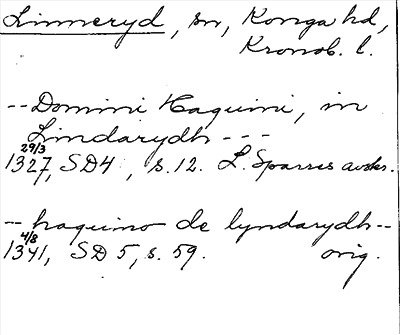 Linneryd, sn, Konga hd,
Kronob. l.
-- Domini Haquini, in
Lindarydh ---
29/3
1327, SD 4, s. 12. L. Sparres avskr.
-- haquino de lyndarydh --
4/8
1341, SD 5, s. 59. orig.